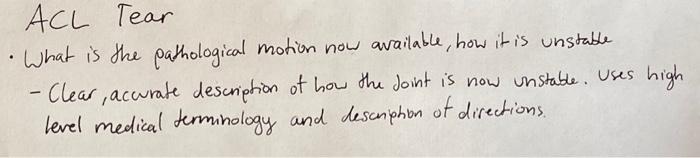 ACL Tear
• What is the pathological motion now available, how it is unstable
- Clear, accurate description of how the Joint is now unstable. Uses high
level medical terminology and description of directions.